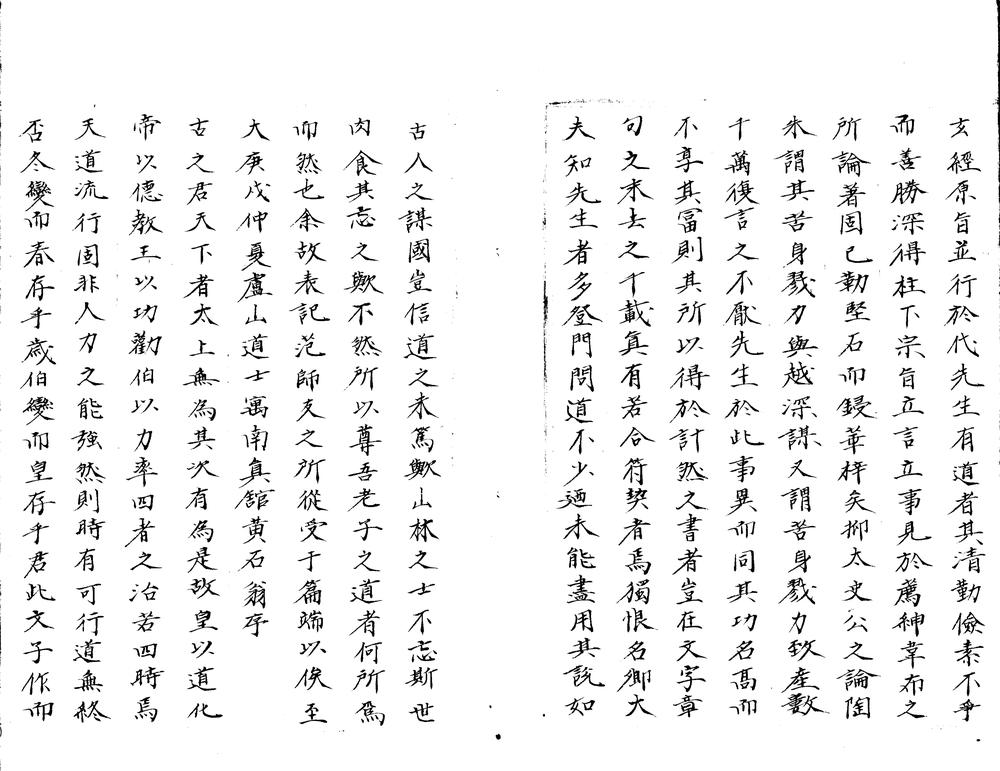 玄經原旨並行於代先生有道者其清勤儉素不爭
而善勝深得柱下宗旨立言立事見於薦紳韋布之
所論著固已勒堅石而鋟華梓矣抑太史公之論陶
朱謂其苦身戮力與越深謀又謂苦身戮力致產數
千萬復言之不厭先生於此事異而同其功名髙而
不享其冨則其所以得於計然之書者豈在文字章
句文末去之千載真有若合符契者焉獨恨名卿大
夫知先生者多登門問道不少廼未能盡用其說如
古人之謀國豈信道之未篤歟山林之士不忘斯世
肉食其忘之歟不然所以尊吾老子之道者何所爲
而然也余故表記范師友之所從受于篇端以俟至
大庚戌仲夏廬山道士寓南真舘黄石翁序
古之君天下者太上無為其次有為是故皇以道化
帝以德教王以功勸伯以力率四者之治若四時焉
天道流行固非人力之能強然則時有可行道無終
否冬變而春存乎歳伯變而皇存乎君此文子作而